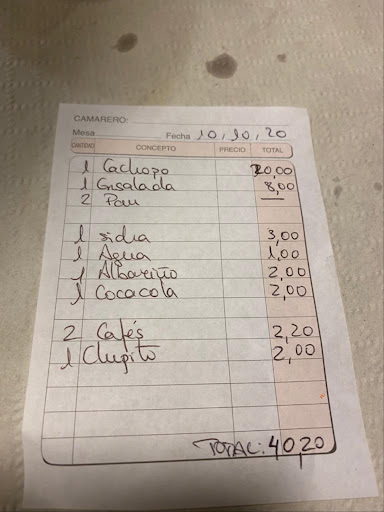 CAMARERO:
Mesa Fecha 10, 10, 20
CANTIDAD CONCEPTO PRECIO TOTAL
1 Cachopo 20,00
1 Ensalada 8,00
2 Pan —
1 sidra 3,00
1 Agua 1,00
1 Albariño 2,00
1 Cocacola 2,00
2 Cafés 2,20
1 Chupito 2,00
TOTAL: 40,20